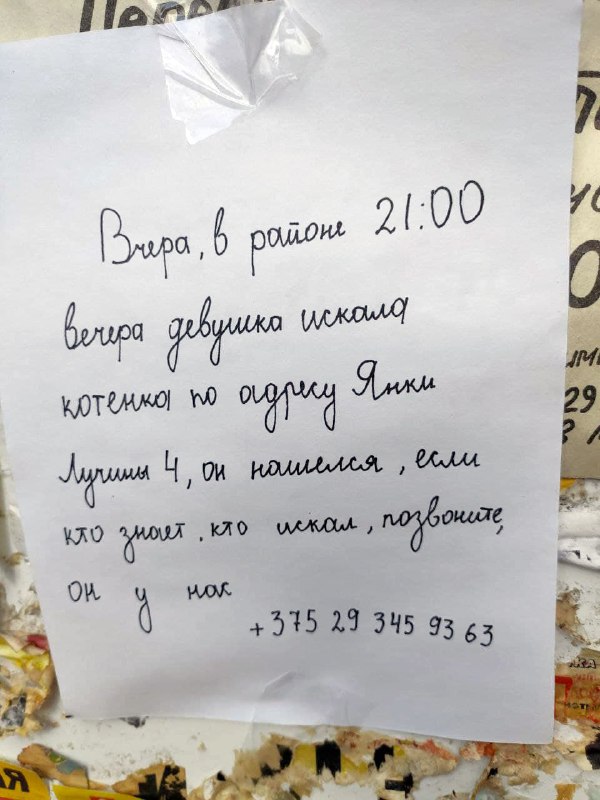 Вчера, в районе 21:00
вечера девушка искала
котенка по адресу Янки
Лучины 4, он нашелся, если
кто знает, кто искал, позвоните,
он у нас
+375 29 345 93 63
29